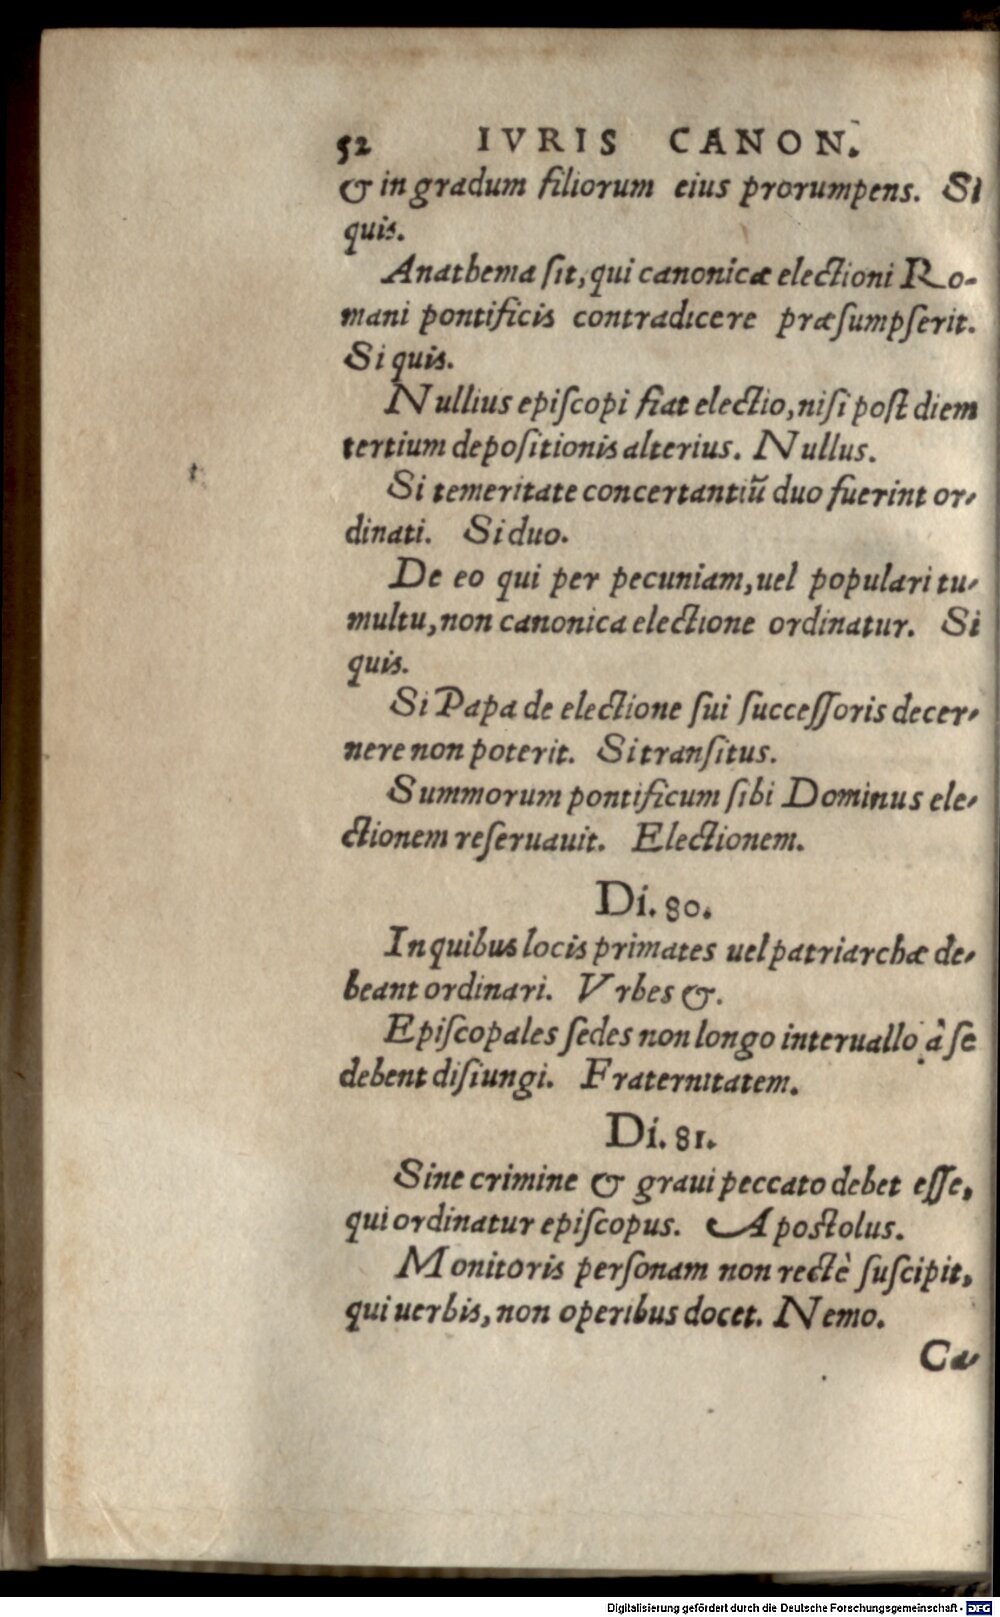 52 IVRIS CANON.
& in gradum filiorum eius prorumpens. Si
quis.
Anathema ſit, qui canonicæ electioni Ro-
mani pontificis contradicere præſumpſerit.
Si quis.
Nullius epiſcopi fiat electio, niſi poſt diem
tertium depoſitionis alterius. Nullus.
Si temeritate concertantiū duo fuerint or-
dinati. Si duo.
De eo qui per pecuniam, uel populari tu-
multu, non canonica electione ordinatur. Si
quis.
Si Papa de electione ſui ſucceſſoris decer-
nere non poterit. Si tranſitus.
Summorum pontificum ſibi Dominus ele-
ctionem reſeruauit. Electionem.
Di. 80.
In quibus locis primates uel patriarchæ de-
beant ordinari. Vrbes &.
Epiſcopales ſedes non longo interuallo à ſe
debent diſiungi. Fraternitatem.
Di. 81.
Sine crimine & graui peccato debet eſſe,
qui ordinatur epiſcopus. Apoſtolus.
Monitoris perſonam non rectè ſuſcipit,
qui uerbis, non operibus docet. Nemo.
Ca-
Digitalisierung gefördert durch die Deutsche Forschungsgemeinschaft - DFG